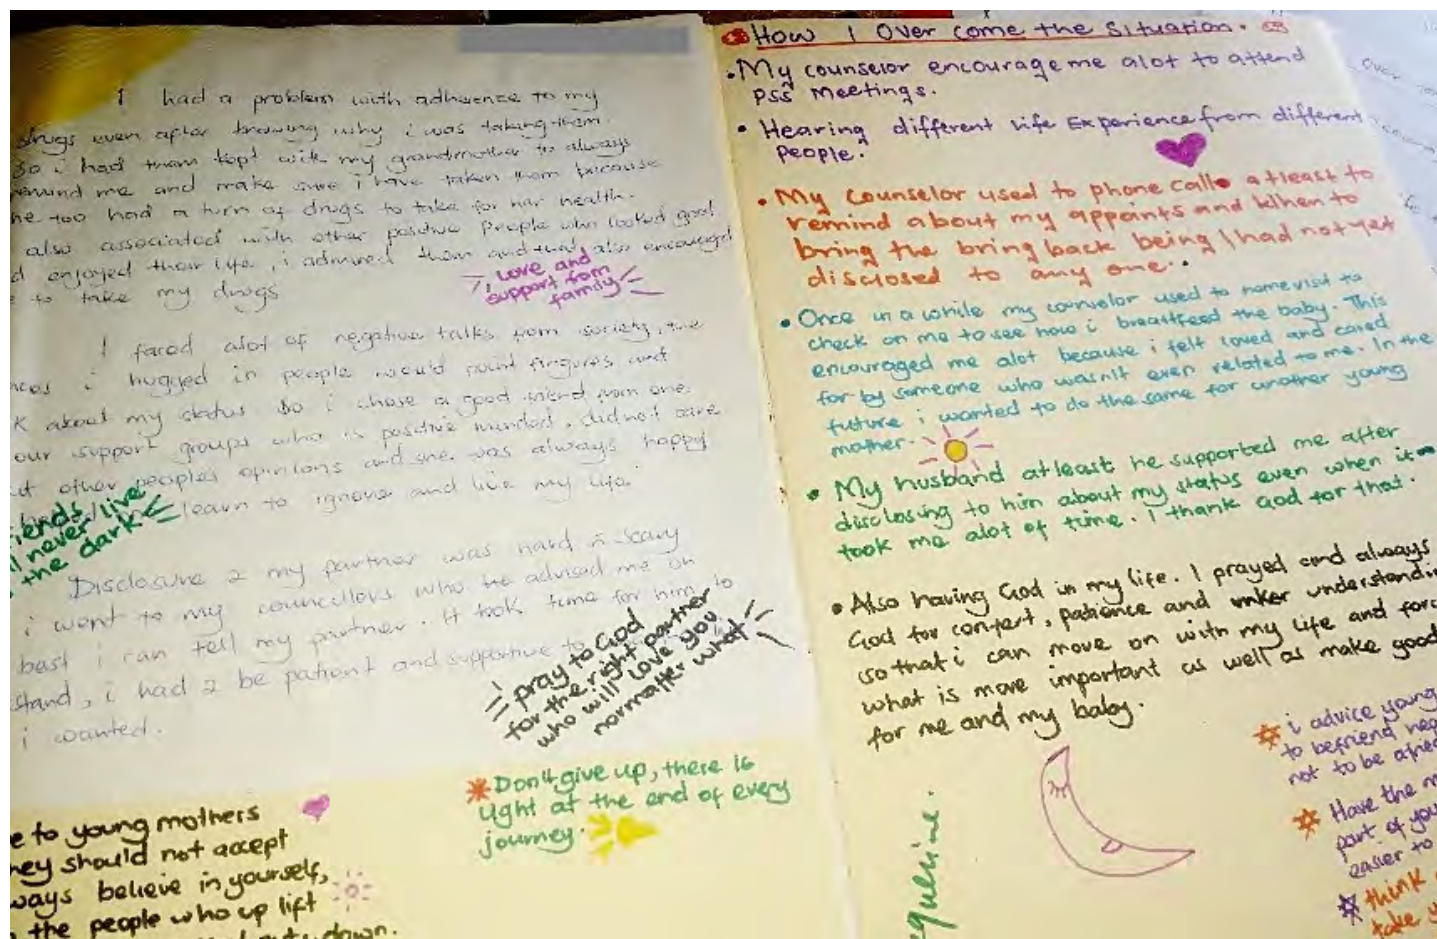 I had a problem with adherence to my
drugs even after knowing why i was taking them.
So i had them kept with my grandmother to always
remind me and make sure i have taken them because
he too had a turn of drugs to take for her health.
also associated with other positive people who looked good
d enjoyed their life, i admired them and that also encouraged
to take my drugs
Love and
support from
family
I faced alot of negative talks from society, the
nces i hugged in people would point fingures and
k about my status. So i chose a good friend from one
our support groups who is positive minded, did not care
ut other peoples opinions and she was always happy
learn to ignore and live my life.
iends
ll never live
the dark
Disclosure 2 my partner was hard n scary
i went to my councellors who he advised me on
best i can tell my partner. It took time for him to
stand, i had 2 be patient and supportive to
i wanted.
pray to God
for the right partner
who will love you
normatter what
Don't give up, there is
light at the end of every
journey.
e to young mothers
hey should not accept
ways believe in yourself,
the people who up lift
down.
How I Over come the Situation.
• My counselor encourage me alot to attend
PSS Meetings.
• Hearing different life Experience from different
People.
• My Counselor used to phone call atleast to
remind about my appoints and when to
bring the bring back being I had not yet
disclosed to any one.
• Once in a while my counselor used to homevisit to
check on me to see how i breastfeed the baby. This
encouraged me alot because i felt loved and cared
for by someone who wasn't even related to me. In the
future i wanted to do the same for another young
mother.
• My husband atleast he supported me after
disclosing to him about my status even when it
took me alot of time. I thank God for that.
• Also having God in my life. I prayed and always
God for comfort, patience and understandin
so that i can move on with my life and
what is more important as well as make good
for me and my baby.
i advice young
to befriend
not to be
Have the
part of you
easier to
think
take
queline.